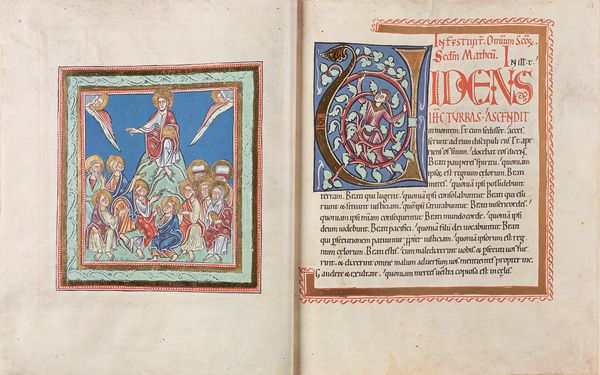 In festivit. Omium Scox.
Sedm Matheu. In ill. t.
VIDENS
IHC TURBAS. ASCENDIT
in montem. Et cum sedisset. acces
serunt ad eum discipuli eius. Et ape
riens os suum. docebat eos dicens.
Beati pauperes spiritu. quoniam
ipsoꝝ est regnum celorum. Beati
mites. quoniam ipsi possidebunt
terram. Beati qui lugent. quoniam ipsi consolabuntur. Beati qui esu
riunt & sitiunt iusticiam. quoniam ipsi saturabuntur. Beati misericordes.
quoniam ipsi misericordiam consequentur. Beati mundo corde. quoniam ipsi
deum uidebunt. Beati pacifici. quoniam filii dei uocabuntur. Beati
qui persecutionem patiuntur propter iusticiam. quoniam ipsorum est reg
num celorum. Beati estis. cum maledixerint uobis. & persecuti uos fue
rint. & dixerint omne malum aduersum uos mentientes propter me.
Gaudete & exultate. quoniam merces uestra copiosa est in celis.